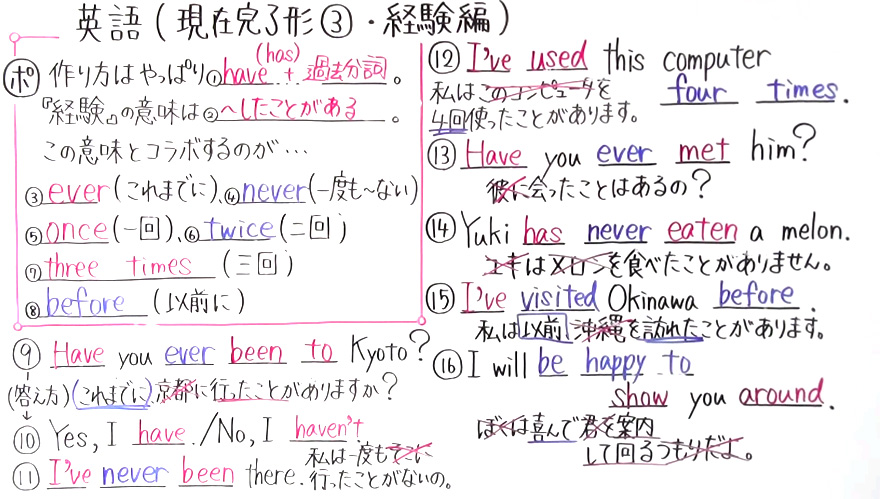 英語(現在完了形③・経験編)
ポ 作り方はやっぱり①have(has) + 過去分詞。
『経験』の意味は②〜したことがある。
この意味とコラボするのが…
③ever(これまでに)、④never(一度も〜ない)
⑤once(一回)、⑥twice(二回)
⑦three times (三回)
⑧before (以前に)
⑨Have you ever been to Kyoto?
(答え方)(これまでに)京都に行ったことがありますか?
↓
⑩Yes, I have./No, I haven't
私は一度もそこに
⑪I've never been there. 行ったことがないの。
⑫I've used this computer
私はこのコンピュータを four times.
4回使ったことがあります。
⑬Have you ever met him?
彼に会ったことはあるの?
⑭Yuki has never eaten a melon.
ユキはメロンを食べたことがありません。
⑮I've visited Okinawa before.
私は以前沖縄を訪れたことがあります。
⑯I will be happy to
show you around.
ぼくは喜んで君を案内
して回るつもりだよ。